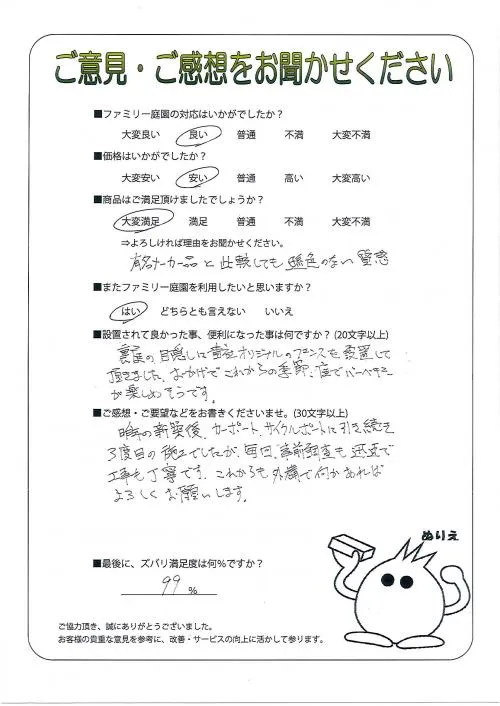 ご意見・ご感想をお聞かせください
■ファミリー庭園の対応はいかがでしたか？
大変良い 良い 普通 不満 大変不満
■価格はいかがでしたか？
大変安い 安い 普通 高い 大変高い
■商品はご満足頂けましたでしょうか？
大変満足 満足 普通 不満 大変不満
⇒よろしければ理由をお聞かせください。
有名メーカー品と比較しても遜色のない質感
■またファミリー庭園を利用したいと思いますか？
はい どちらとも言えない いいえ
■設置されて良かった事、便利になった事は何ですか？(20文字以上)
裏庭の目隠しに貴社オリジナルのフェンスを設置して
頂きました。おかげでこれからの季節、庭でバーベキュー
が楽しめそうです。
■ご感想・ご要望などをお書きくださいませ。(30文字以上)
昨年の新築後、カーポート、サイクルポートに引き続き
3度目の施工でしたが、毎回、事前調査も迅速で
工事も丁寧です。これからも外構で何かあれば
よろしくお願いします。
ぬりえ
■最後に、ズバリ満足度は何％ですか？
99 %
ご協力頂き、誠にありがとうございました。
お客様の貴重な意見を参考に、改善・サービスの向上に活かして参ります。